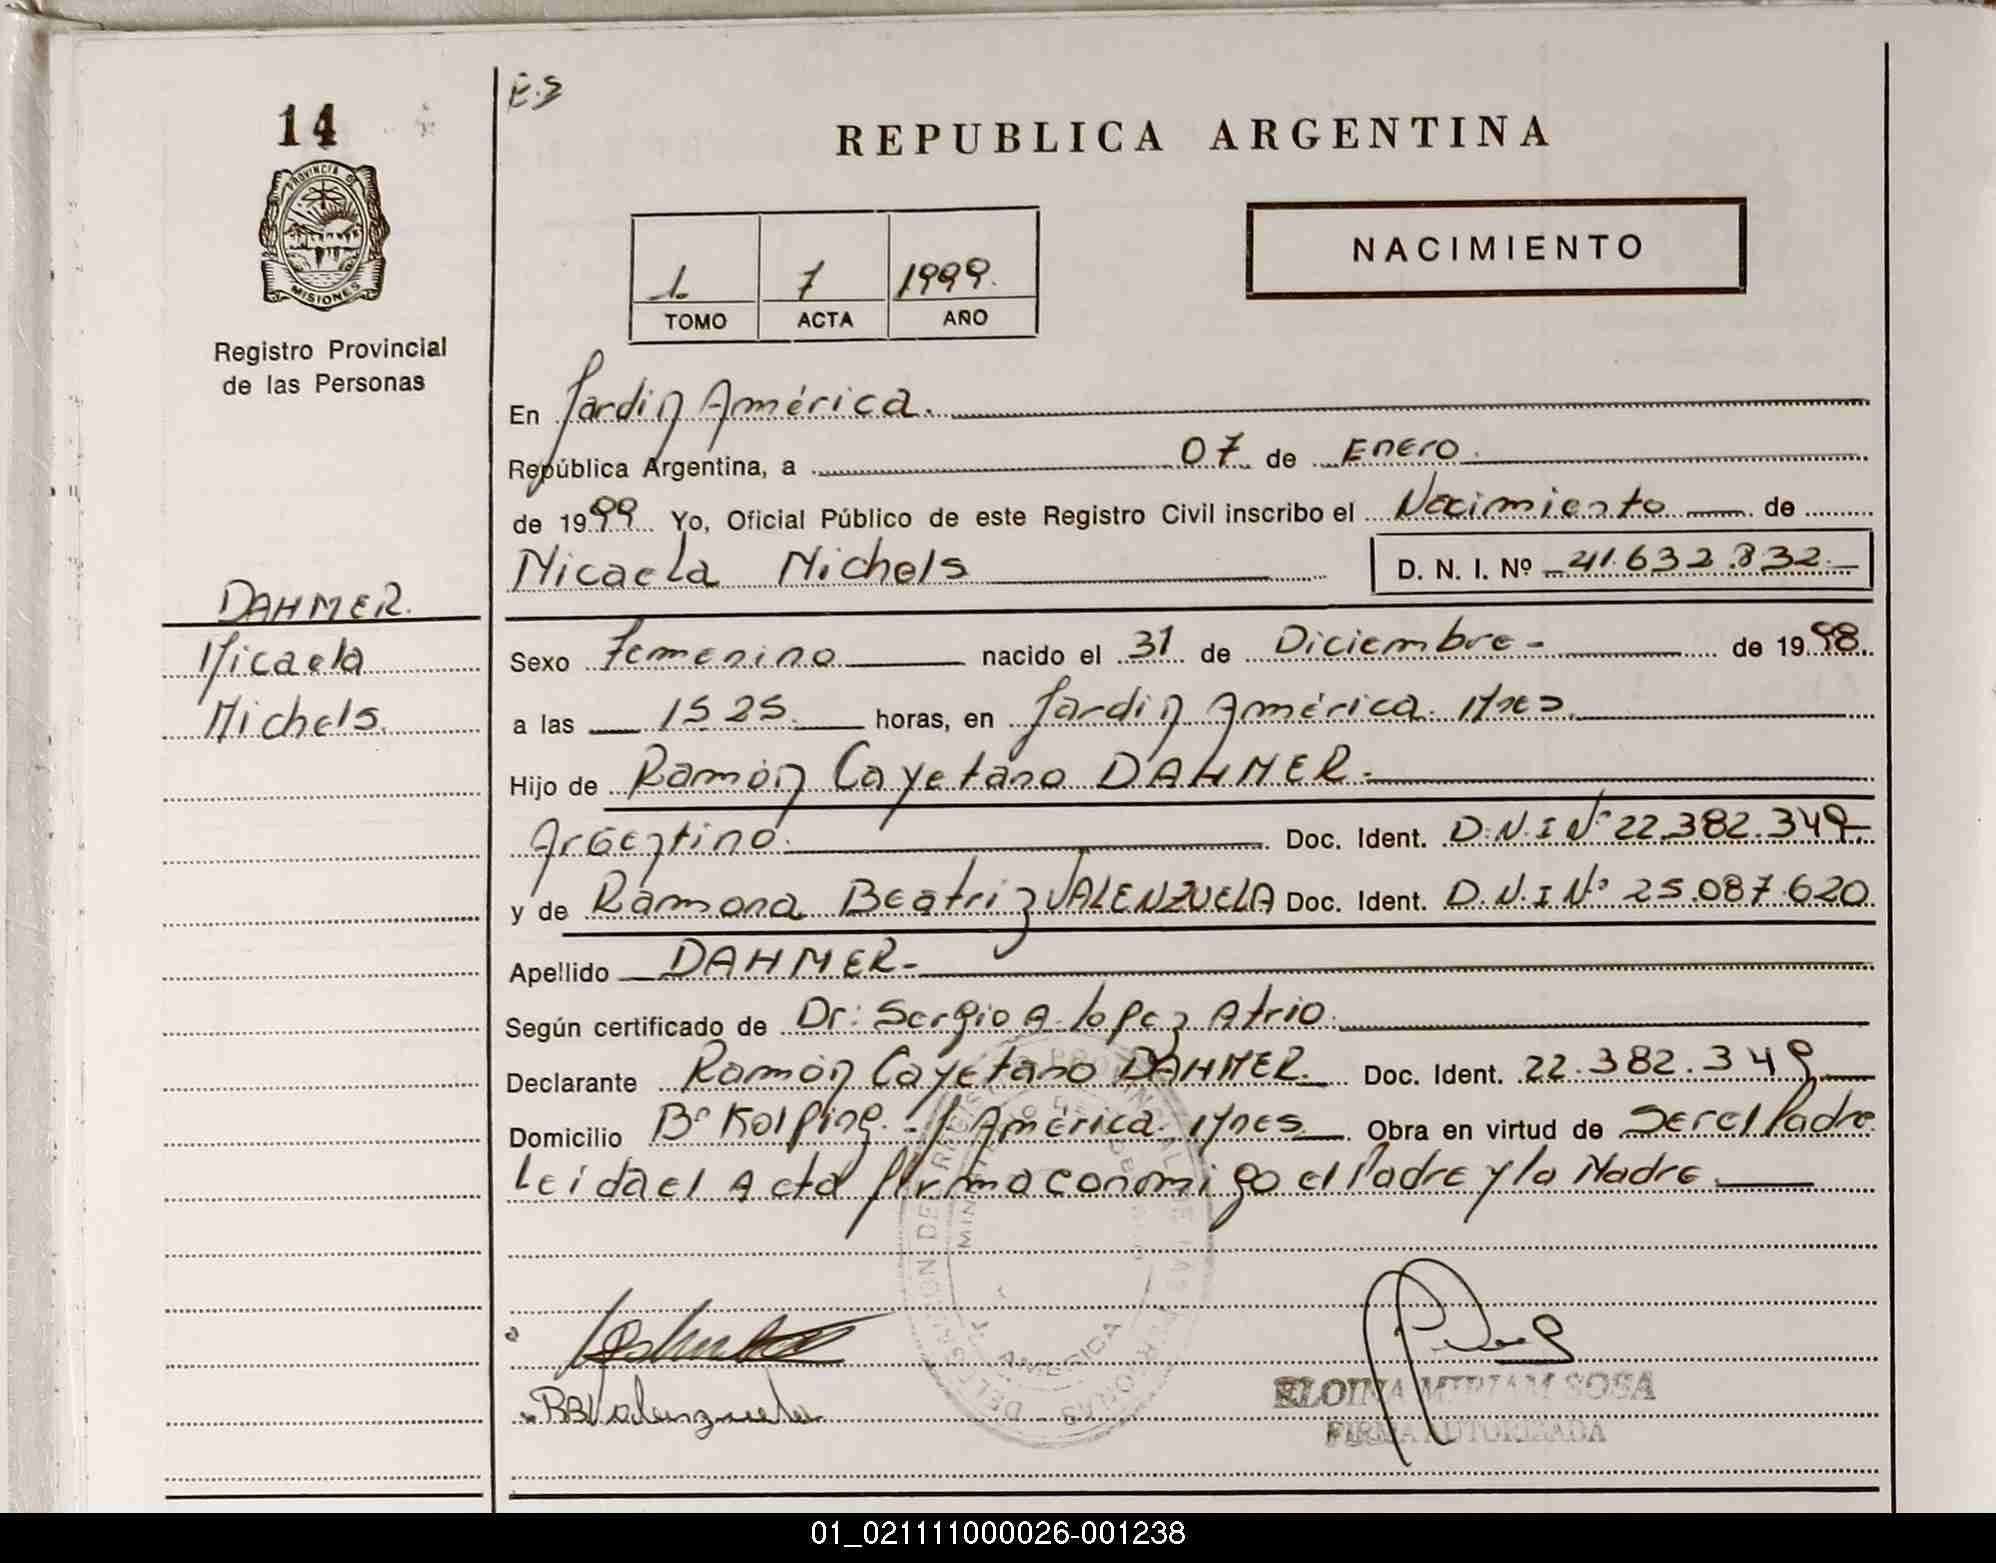 14
E.S
PROVINCIA DE
MISIONES
Registro Provincial
de las Personas
REPUBLICA ARGENTINA
NACIMIENTO
1. 7 1999.
TOMO ACTA AÑO
En Jardin América.
República Argentina, a 07 de Enero.
de 1999 Yo, Oficial Público de este Registro Civil inscribo el Nacimiento de
Micaela Michels D. N. I. Nº 41.632.832.
DAHMER.
Micaela
Michels.
Sexo Femenino nacido el 31 de Diciembre- de 1998.
a las 1525. horas, en Jardin América. Mnes.
Hijo de Ramón Cayetano DAHMER-
Argentino. Doc. Ident. D.N.I Nº 22.382.349-
y de Ramona Beatriz VALENZUELA Doc. Ident. D.N.I Nº 25.087.620.
Apellido DAHMER-
Según certificado de Dr: Sergio A. Lopez Atrio.
Declarante Ramón Cayetano DAHMER. Doc. Ident. 22.382.349
Domicilio Bº Kolping. - J. América. Mnes Obra en virtud de Ser el Padre
Leida el Acta firma conomigo el Padre y la Madre.
BBValenzuela
ELOINA MIRIAM SOSA
FIRMA AUTORIZADA
01_021111000026-001238